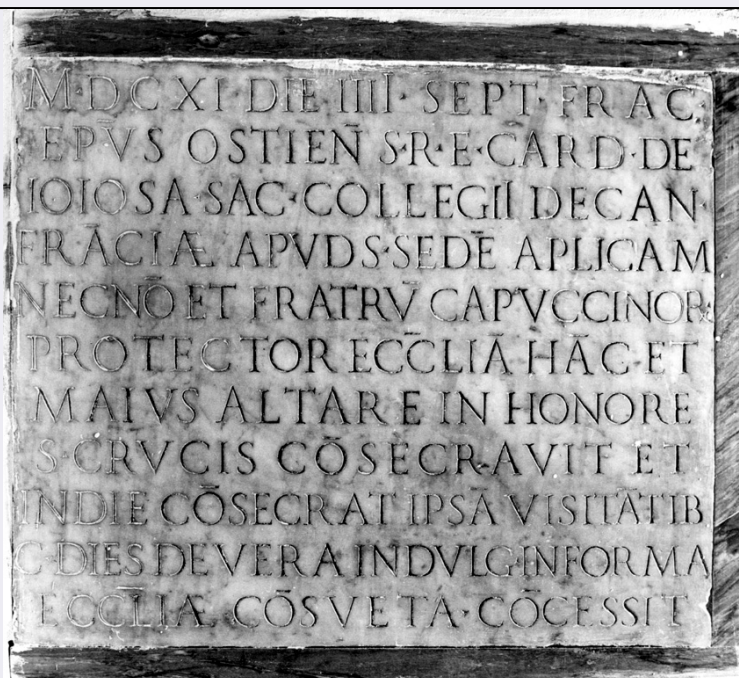 M·DCXI·DIE·IIII·SEPT·FRAC·
EPV̄S OSTIEN̄ S·R·E·CARD·DE
IOIOSA·SAC·COLLEGII DECAN·
FRĀCIÆ APVD S·SEDĒ APLICAM
NECNŌ ET FRATRV̄ CAPVCCINOR·
PROTECTOR ECC̄LIĀ HĀC·ET
MAIVS ALTARE IN HONORE
S·CRVCIS CŌSECRAVIT ET
IN DIE CŌSECRAT IPSĀ VISITĀTIB
C·DIES DE VERA INDVLG·IN FORMA
ECC̄LIÆ CŌSVETA·CŌCESSIT